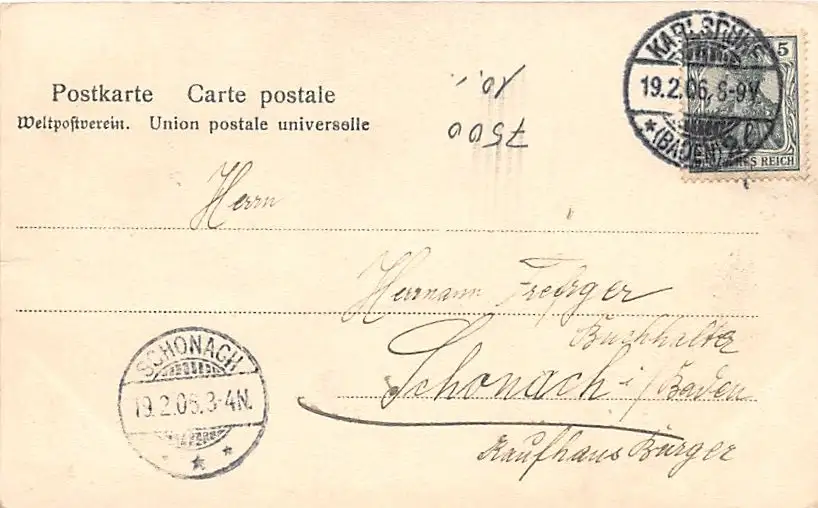 Postkarte Carte postale
Weltpostverein. Union postale universelle
10,-
7500
KARLSRUHE
19.2.06. 8-9V.
*(BADEN) 2
5
REICH
Herrn
Hermann
Buchhalter
Schonach i/Baden
Kaufhaus Burger
SCHONACH
19.2.06. 3-4N.